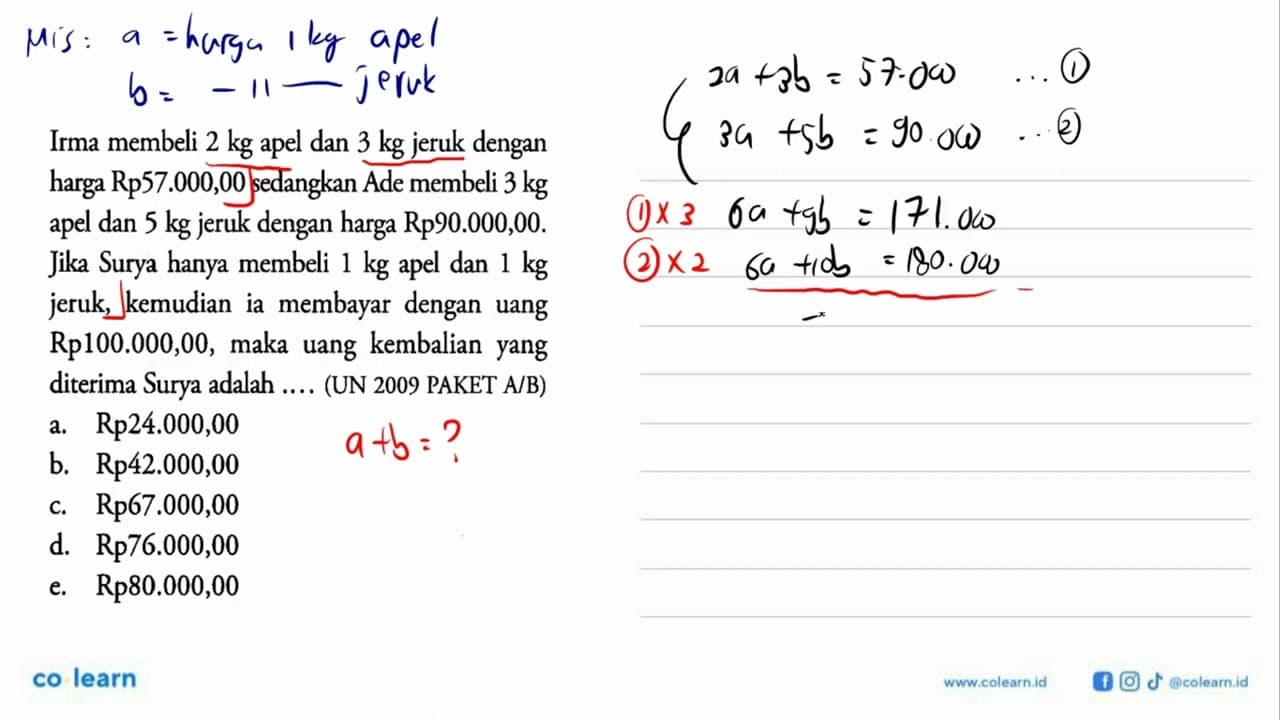 Mis: a = harga 1 kg apel
b = - 11 — jeruk
Irma membeli 2 kg apel dan 3 kg jeruk dengan
harga Rp57.000,00 sedangkan Ade membeli 3 kg
apel dan 5 kg jeruk dengan harga Rp90.000,00.
Jika Surya hanya membeli 1 kg apel dan 1 kg
jeruk, kemudian ia membayar dengan uang
Rp100.000,00, maka uang kembalian yang
diterima Surya adalah .... (UN 2009 PAKET A/B)
a. Rp24.000,00
b. Rp42.000,00
c. Rp67.000,00
d. Rp76.000,00
e. Rp80.000,00
a+b = ?
2a + 3b = 57.000 ... ①
3a + 5b = 90.000 ... ②
① x 3 6a + 9b = 171.000
② x 2 6a + 10b = 180.000 -
-
co learn
www.colearn.id
@colearn.id